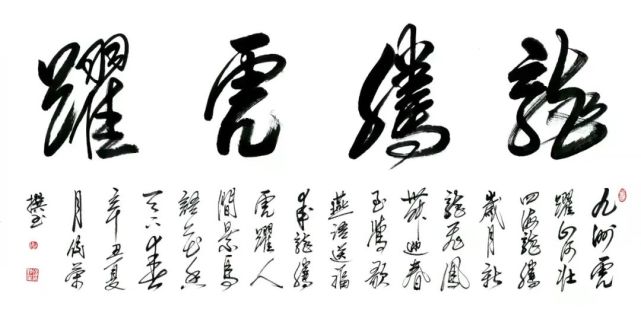 龍騰虎躍
九州虎
躍山河壯
四海龍騰
歲月新
龍飛鳳
舞迎春
玉鶯歌
燕語送福
來龍騰
虎躍人
間景鳥
語花香
天下春
辛丑夏
月俊榮